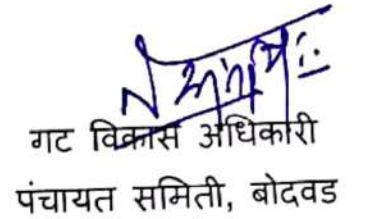 गट विकास अधिकारी
पंचायत समिती, बोदवड